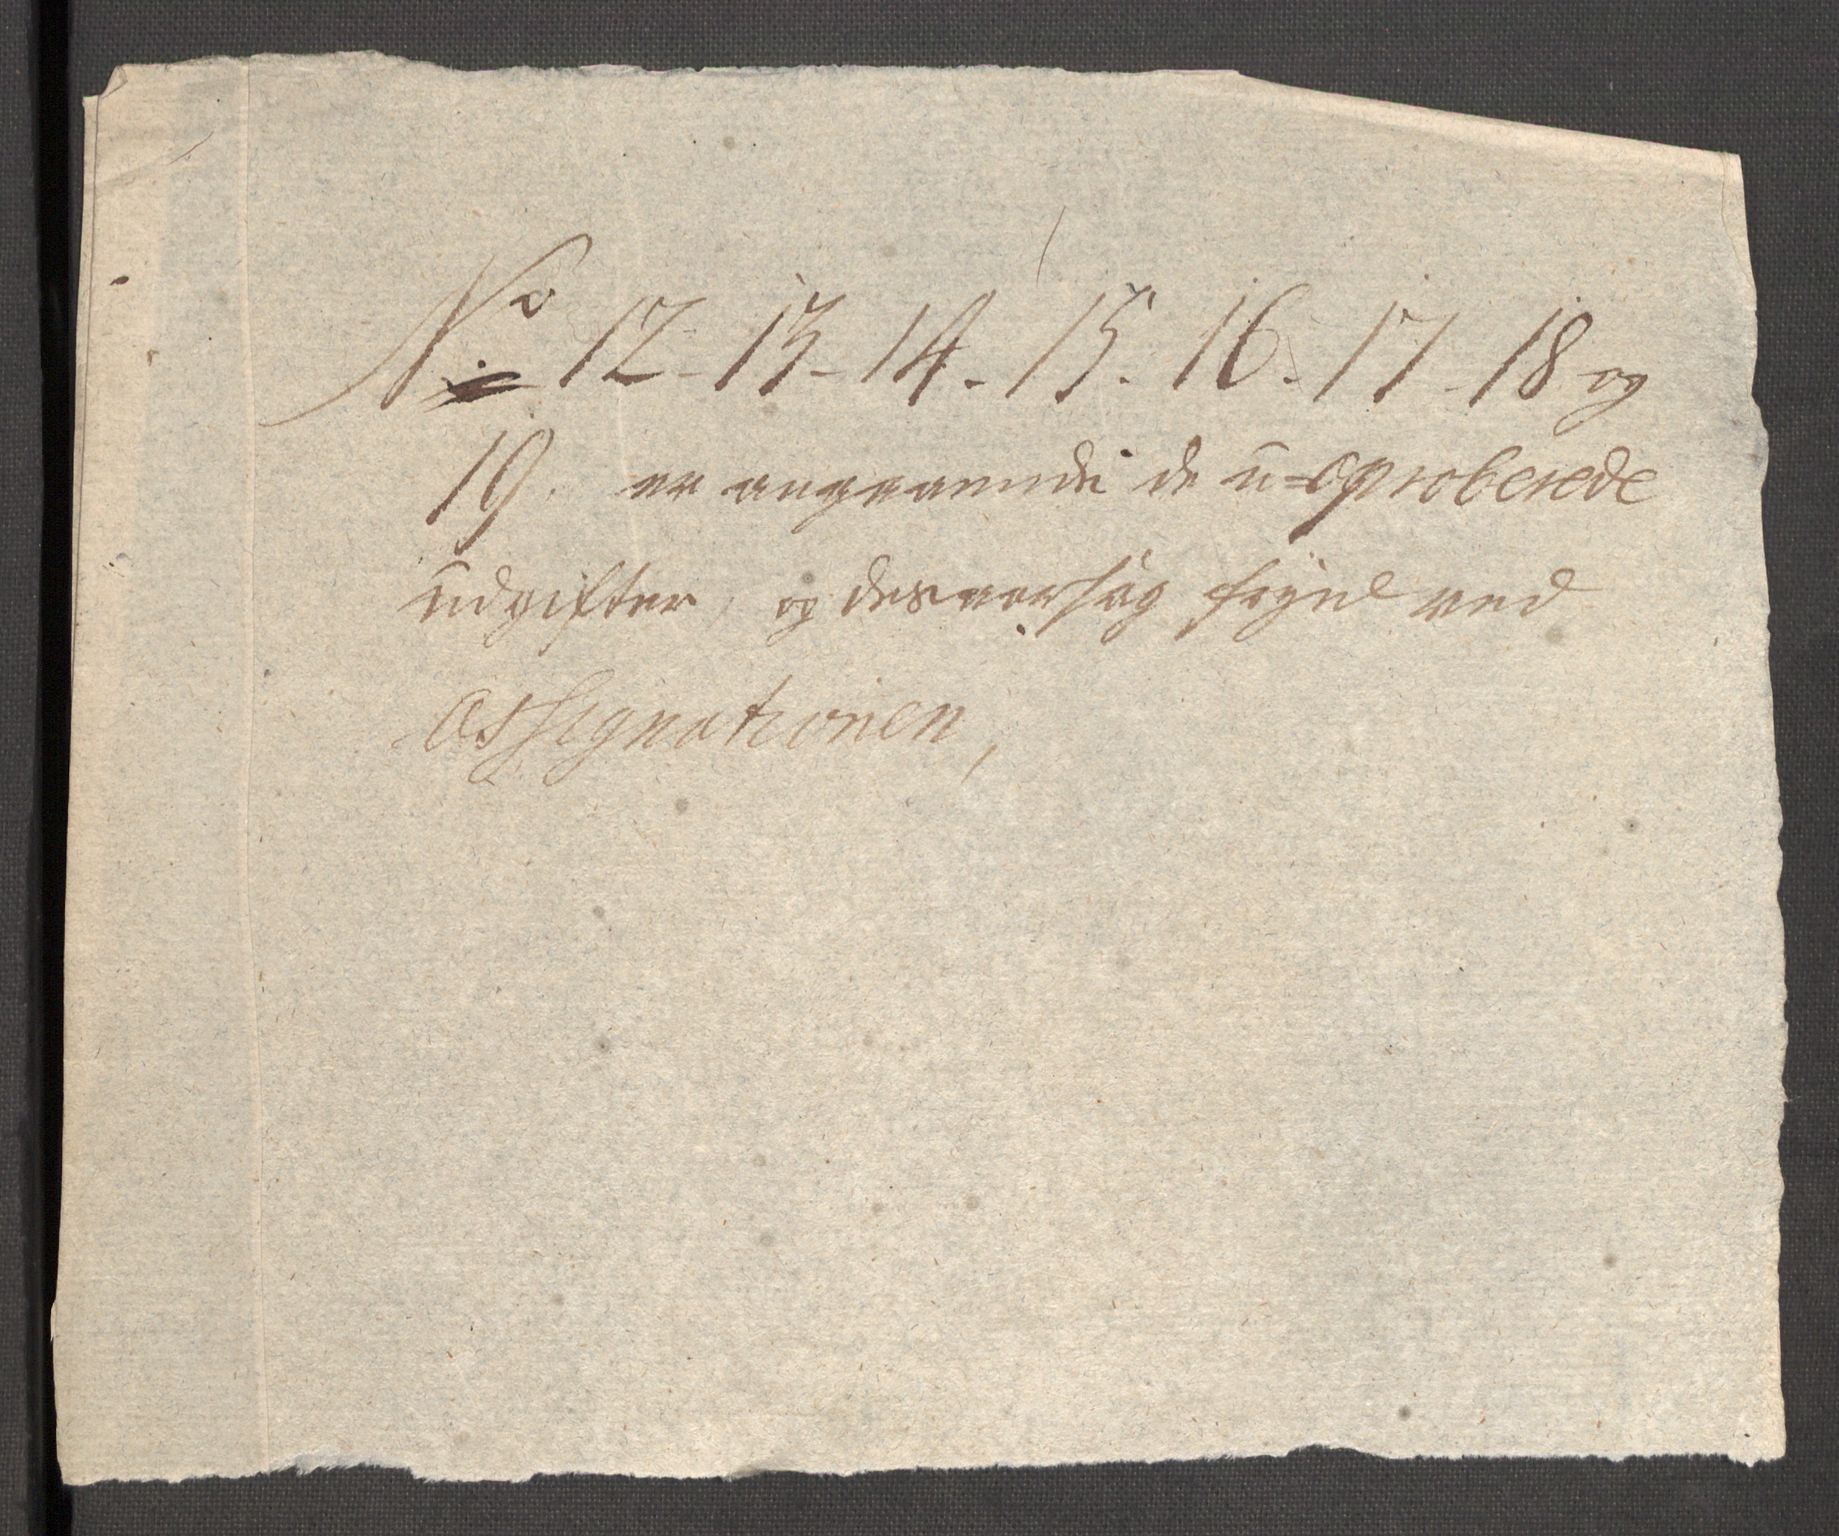 No 12 - 13 - 14 - 15. 16. 17 - 18 og
19. er angaaende de u-aproberede
udgifter, og desaarsag ved
Assignationen,